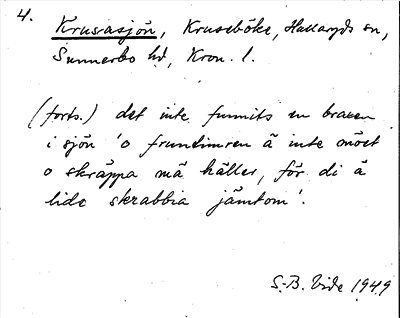 4.
Krusasjön, Kruseböke, Hallaryds sn,
Sunnerbo hd, Kron. l.
(forts.) det inte funnits en braxen
i sjön 'o fruntimren ä inte möet
o skräppa mä häller, för di ä
lide skrabbia jämtom'.
S.-B. Vide 1949